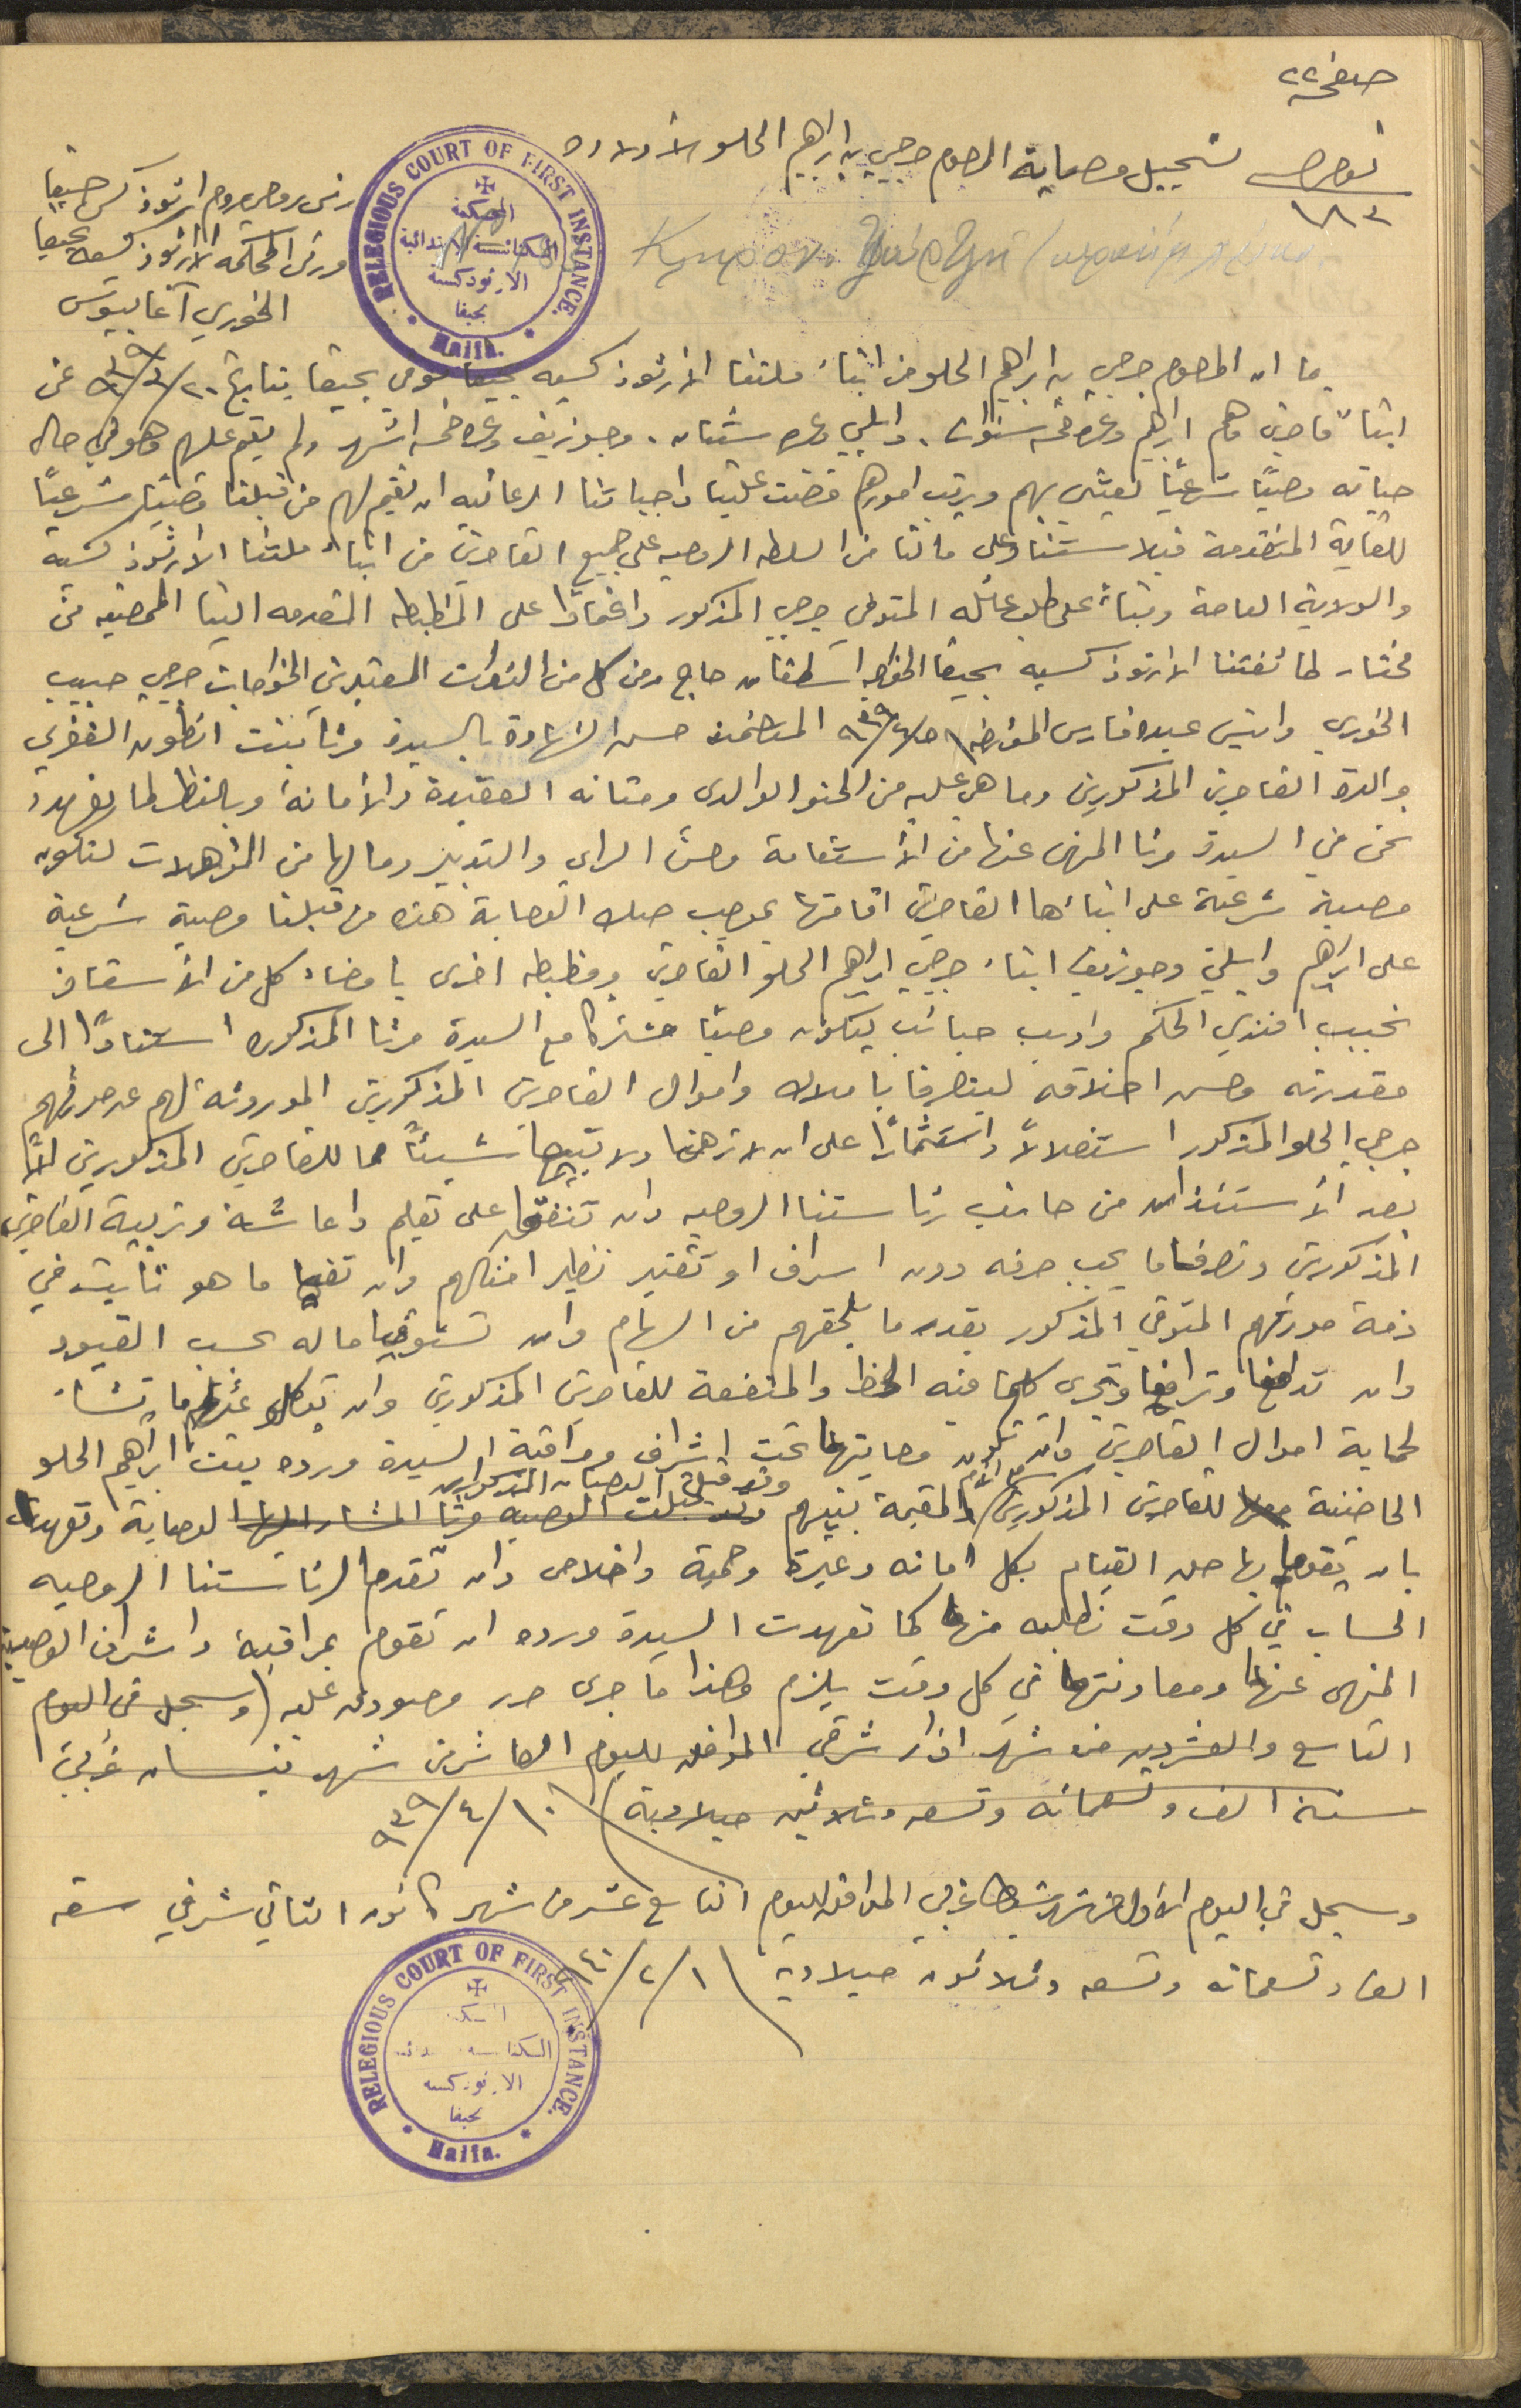 صفحة ٢٢
نومرو
١٨٣
تسجيل وصاية المرحوم جرجي بن ابراهيم الحلو لأولاده
رئيس روحي روم ارثوذكس حيفا
ورئيس المحكمة الارثوذكسية بحيفا
الخوري آغابيوس
RELEGIOUS COURT OF FIRST INSTANCE.
المحكمة
الكنائسية الابتدائية
الارثوذكسية
بحيفا
Haifa.
بما ان المرحوم جرجي بن ابراهيم الحلو من ابناء ملتنا الارثوذكسية بحيفا توفى بحيفا بتاريخ ٢٠/٣/٩٣٩ عن
ابناء قاصرين وهم ابراهيم وعمره خمسة سنوات. وايلي وعمره سنتان. وجوزيف وعمره خمسة اشهر ولم يقم عليهم وهو في حال
حياته وصيًا شرعيًا يعتني بهم ويرتب امورهم قضت علينا واجباتنا الرعائيه ان نقيم لهم من قبلنا وصيًا شرعيًا
للغاية المتقدمة فبالاستناد على مالنا من السلطه الروحيه على جميع القاصرين من ابناء ملتنا الارثوذكسية
والولاية العامة وبناءً على طلب عائلة المتوفي جرجي المذكور واعتمادًا على المظبطه المتقدمه الينا الممضيه من
مختار طائفتنا الارثوذكسيه بحيفا الخواجه اسطفان حاج ومن كل من الذوات المعتبرين الخواجات جرجي حبيب
الخوري وانيس عبده فارس المؤرخه ٤/٩٣٩ المتضمنة حسن الشهادة بالسيدة مرتا بنت انطون الغفري
والدة القاصرين المذكورين وما هي عليه من الحنو الوالدى ومتانه العقيدة والأمانة وبالنظر لما نعهده
نحن في السيدة مرتا المنهى عنها من الأستقامة وحسن الراى والتدبير وما لها من المؤهلات لتكون
وصية شرعية على ابنائها القاصرين اقامتها بموجب صك الوصاية هذه من قبلنا وصية شرعية
على ابراهيم وايلي وجوزيف ابناء جرجي ابراهيم الحلو القاصرين ومظبطه اخرى بامضاء كل من الأستاذ
نجيب افندي الحكيم واديب حبائب ليكون وصيًا مشتركا مع السيدة مرتا المذكوره استنادًا الى
مقدرته وحسن اخلاقه ليتصرفا باملاك واموال القاصرين المذكورين الموروثة لهم عن مورثهم
جرجي الحلو المذكور استغلالاً واستثمارًا على ان لا ترهنا ولا تبيعا شيئًا مما للقاصرين المذكورين الا
بعد الأستئذان من جانب رئاستنا الروحيه وان تنفقا على تعليم واعاشة وتربية القاصرين
المذكورين وتصرفا ما يجب صرفه دون اسراف او تقتير نظير امثالهم وان تفيا ما هو ثابت في
ذمة مورثهم المتوفي المذكور بقدر ما يلحقهم من السهام وان تستوفيا ماله بحسب القيود
وان تدافعا وترافعا وتجرى كلما فيه الحظ والمنفعة للقاصرين المذكورين وان توكلا عنهما من تشاء
لحماية اموال القاصرين وان تكون وصايتهما تحت اشراف ومراقبة السيدة ورده بنت ابراهيم الحلو
الحاضنة للقاصرين المذكورين مع الأم والمقيمة بينهم وقد قبلت الوصيه مرتا المشار اليها الوصاية وتعهدت
وقد قبلا الوصيان المذكوران
بان يقوما بها حق القيام بكل امانه وغيرة وحمية واخلاص وان تقدما لرئاستنا الروحيه
الحساب في كل وقت نطلبه منهما كما تعهدت السيدة ورده ان تقوم بمراقبة واشراف الوصيين
المنهى عنهما ومعاونتهما في كل وقت يلزم وهذا ما جرى حرر وصودق عليه (وسجل في اليوم
التاسع والعشرين من شهر اذار شرقي الموافق لليوم العاشر من شهر نيسان غربي
سنة الف وتسعمائه وتسعه وثلاثين ميلادية) ١٠/٤/٩٣٩
وسجل في اليوم الأول من شهر شباط غربي الموافق لليوم التاسع عشر من شهر كانون الثاني شرقي سنة
الف وتسعمائه وتسعه وثلاثون ميلاديه ١/٢/٩٤٠
RELEGIOUS COURT OF FIRST INSTANCE.
الارثوذكسية
بحيفا
Haifa.